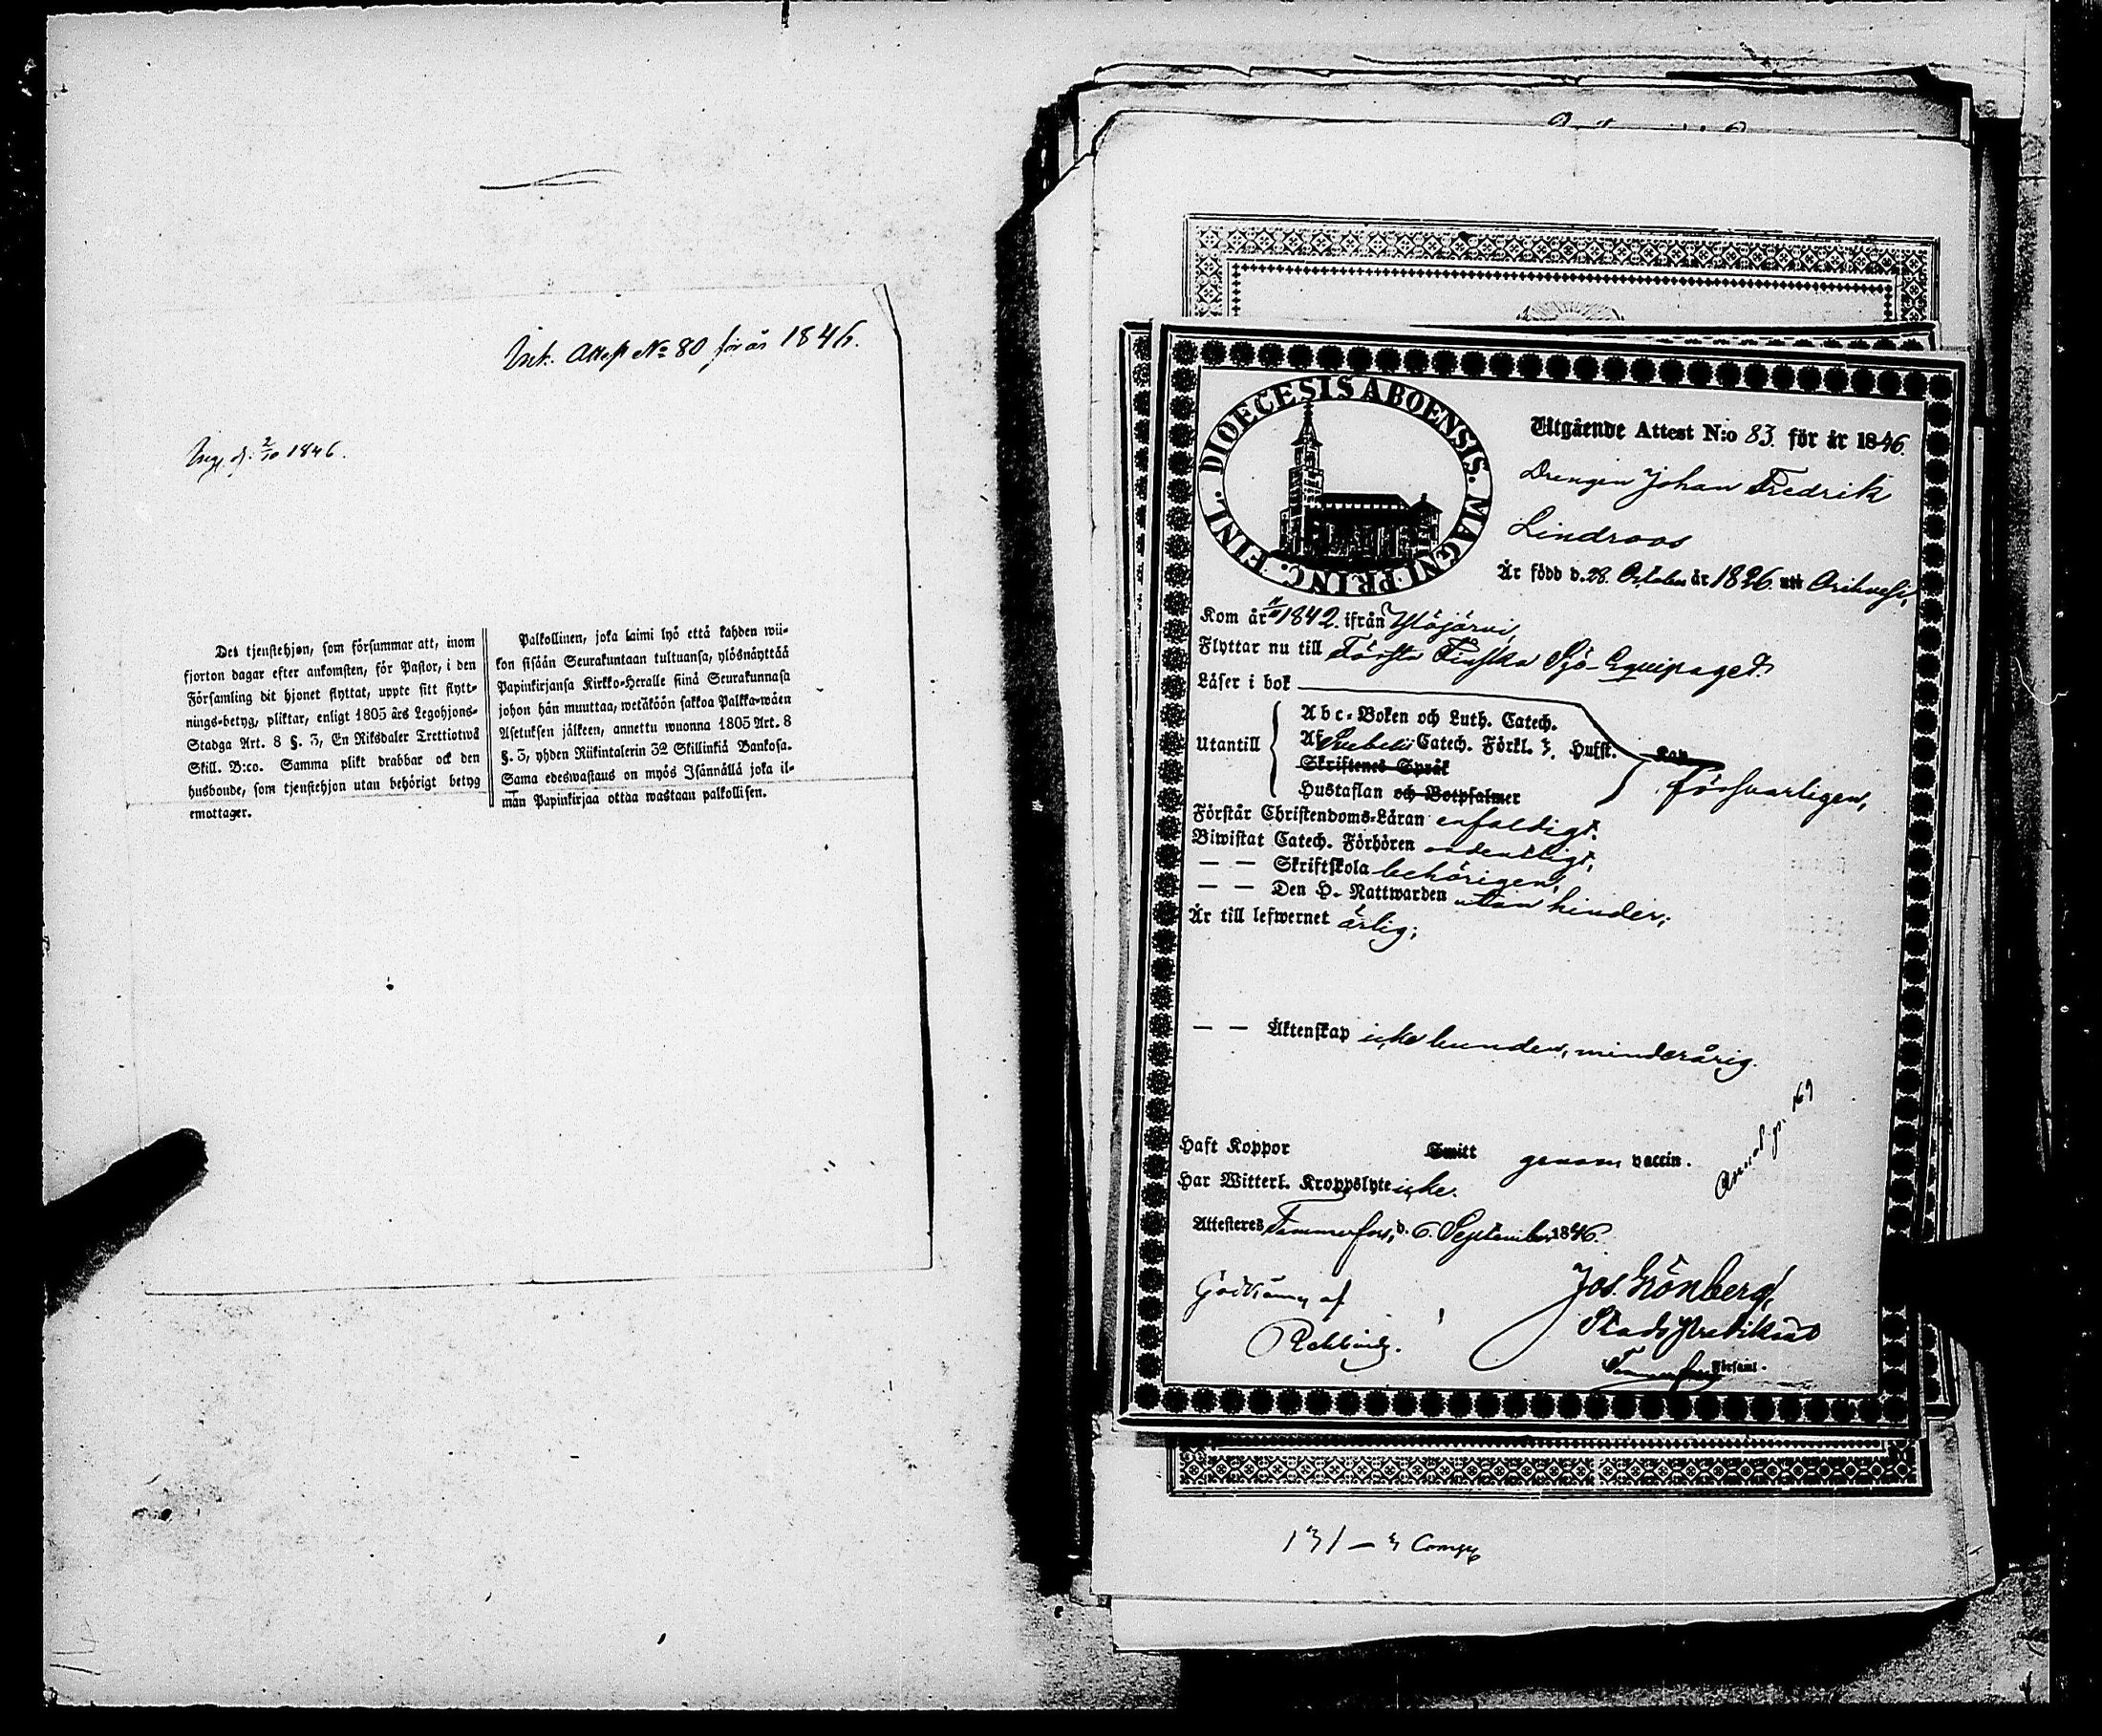 Ink. Attest No 80 för år 1846.
Ingf. d. 2/10 1846.
Det tjenstehjon, som försummar att, inom
fjorton dagar efter ankomsten, för Pastor, i den
Församling dit hjonet flyttat, uppte sitt flytt-
nings-betyg, pliktar, enligt 1805 års Legohjons-
Stadga Art. 8 §. 3, En Riksdaler Trettiotwå
Skill. B:co. Samma plikt drabbar ock den
husbonde, som tjenstehjon utan behörigt betyg
emottager.
Palkollinen, joka laimi lyö että kahden wii-
kon sisään Seurakuntaan tultuansa, ylösnäyttää
Papinkirjansa Kirkko-Heralle siinä Seurakunnasa
johon hän muuttaa, wetäköön sakkoa Palkka-wäen
Asetuksen jälkeen, annettu wuonna 1805 Art. 8
§. 3, yhden Riikintalerin 32 Skillinkiä Bankosa.
Sama edeswastaus on myös Isännällä joka il-
man Papinkirjaa ottaa wastaan palkollisen.
DIOECESIS ABOENSIS. MAGNI PRINC. FINL.
Utgående Attest N:o 83. för år 1846.
Drengen Johan Fredrik
Lindroos
Är född d. 28. October år 1826. uti Orihvesi,
Kom år 1842. ifrån Ylöjärvi,
Flyttar nu till Första Finska Sjö-Equipaget.
Läser i bok
Utantill
Abc-Boken och Luth. Catech.
Af Svebelii Catech. Förkl. 3. Hufst. Kap
Skriftenes Språk
Hustaflan och Botpsalmer
försvarligen,
Förstår Christendoms-Läran enfaldigt.
Biwistat Catech. Förhören ordentligt,
— — Skriftskola behörigen,
— — Den H. Nattwarden utan hinder;
Är till lefwernet ärlig;
— — Äktenskap icke bunden, minderårig.
Haft Koppor Smitt genom vaccin.
Har Witterl. Kroppslyte icke.
Annot. p. 169
Attesteres Tammerfors, d. 6. September 1846.
Godkänes af
Rehbinder.
Jos. Grönberg,
Stadspredikant
Tammerfors Församl.
131 – 3 Comp